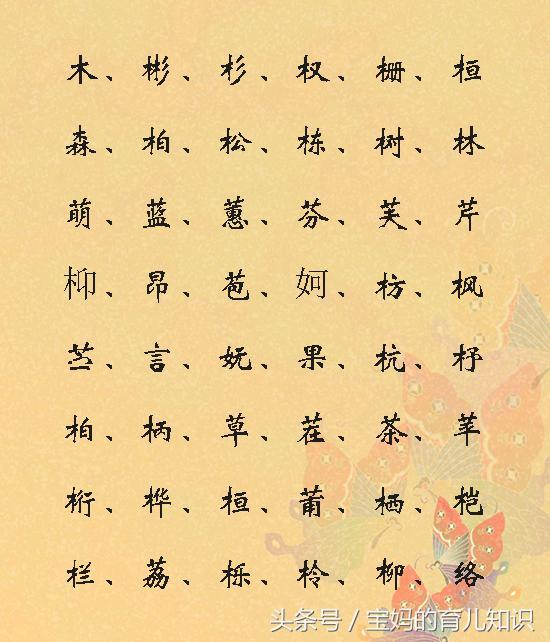 木、彬、杉、权、栅、桓
森、柏、松、栋、树、林
萌、蓝、蕙、芬、芙、芹
枊、昂、苞、妸、枋、枫
苎、言、妩、果、杭、杼
柏、柄、草、茬、茶、苹
桁、桦、桓、莆、栖、桤
栏、荔、栎、柃、柳、络
头条号/宝妈的育儿知识